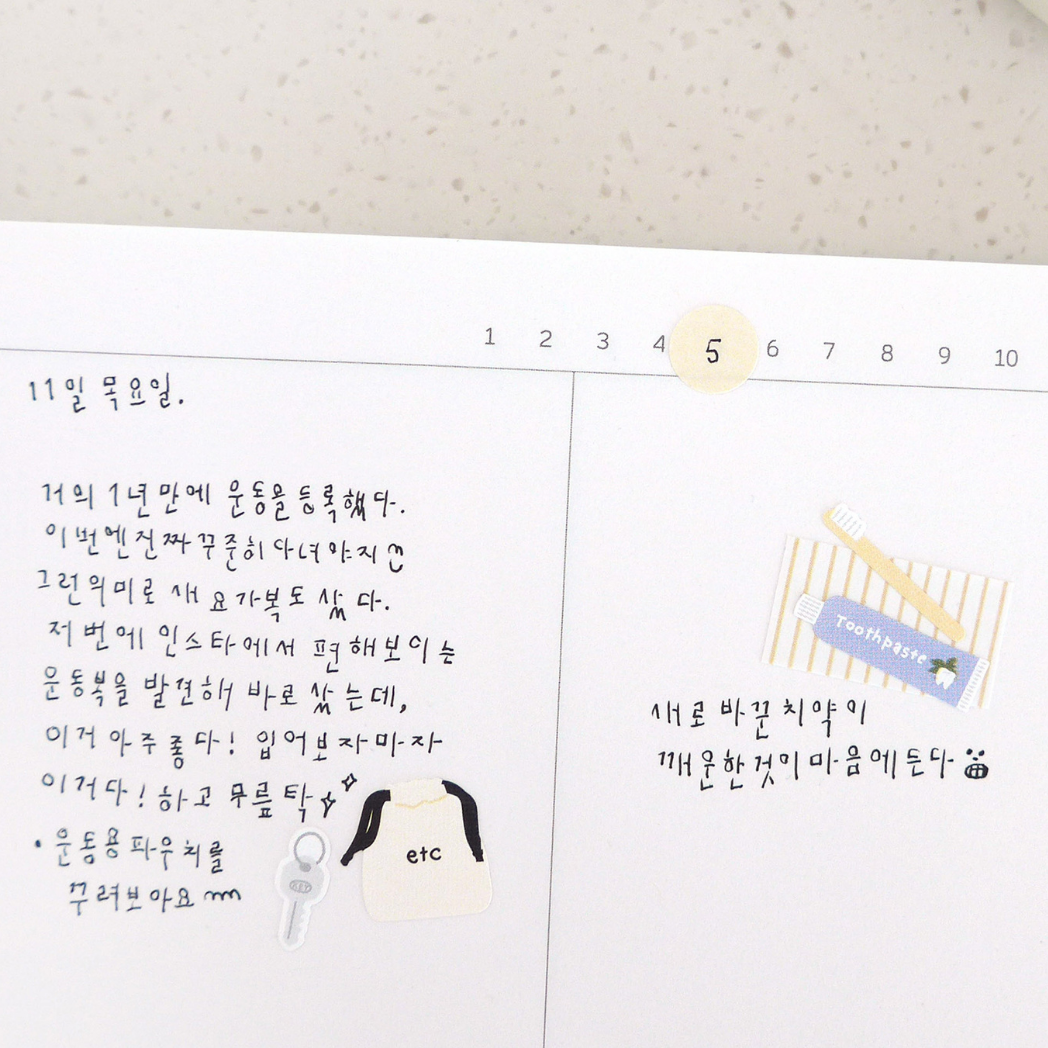 1 2 3 4 5 6 7 8 9 10
11일 목요일.
거의 1년만에 운동을 등록했다.
이번엔 진짜 꾸준히 다녀야지
그런의미로 새 요가복도 샀다.
저번에 인스타에서 편해보이는
운동복을 발견해 바로 샀는데,
이거 아주좋다! 입어보자마자
이거다! 하고 무릎 탁
• 운동용 파우치를
꾸려보아요
KEY
etc
Toothpaste
새로 바꾼 치약이
깨운한것이 마음에든다